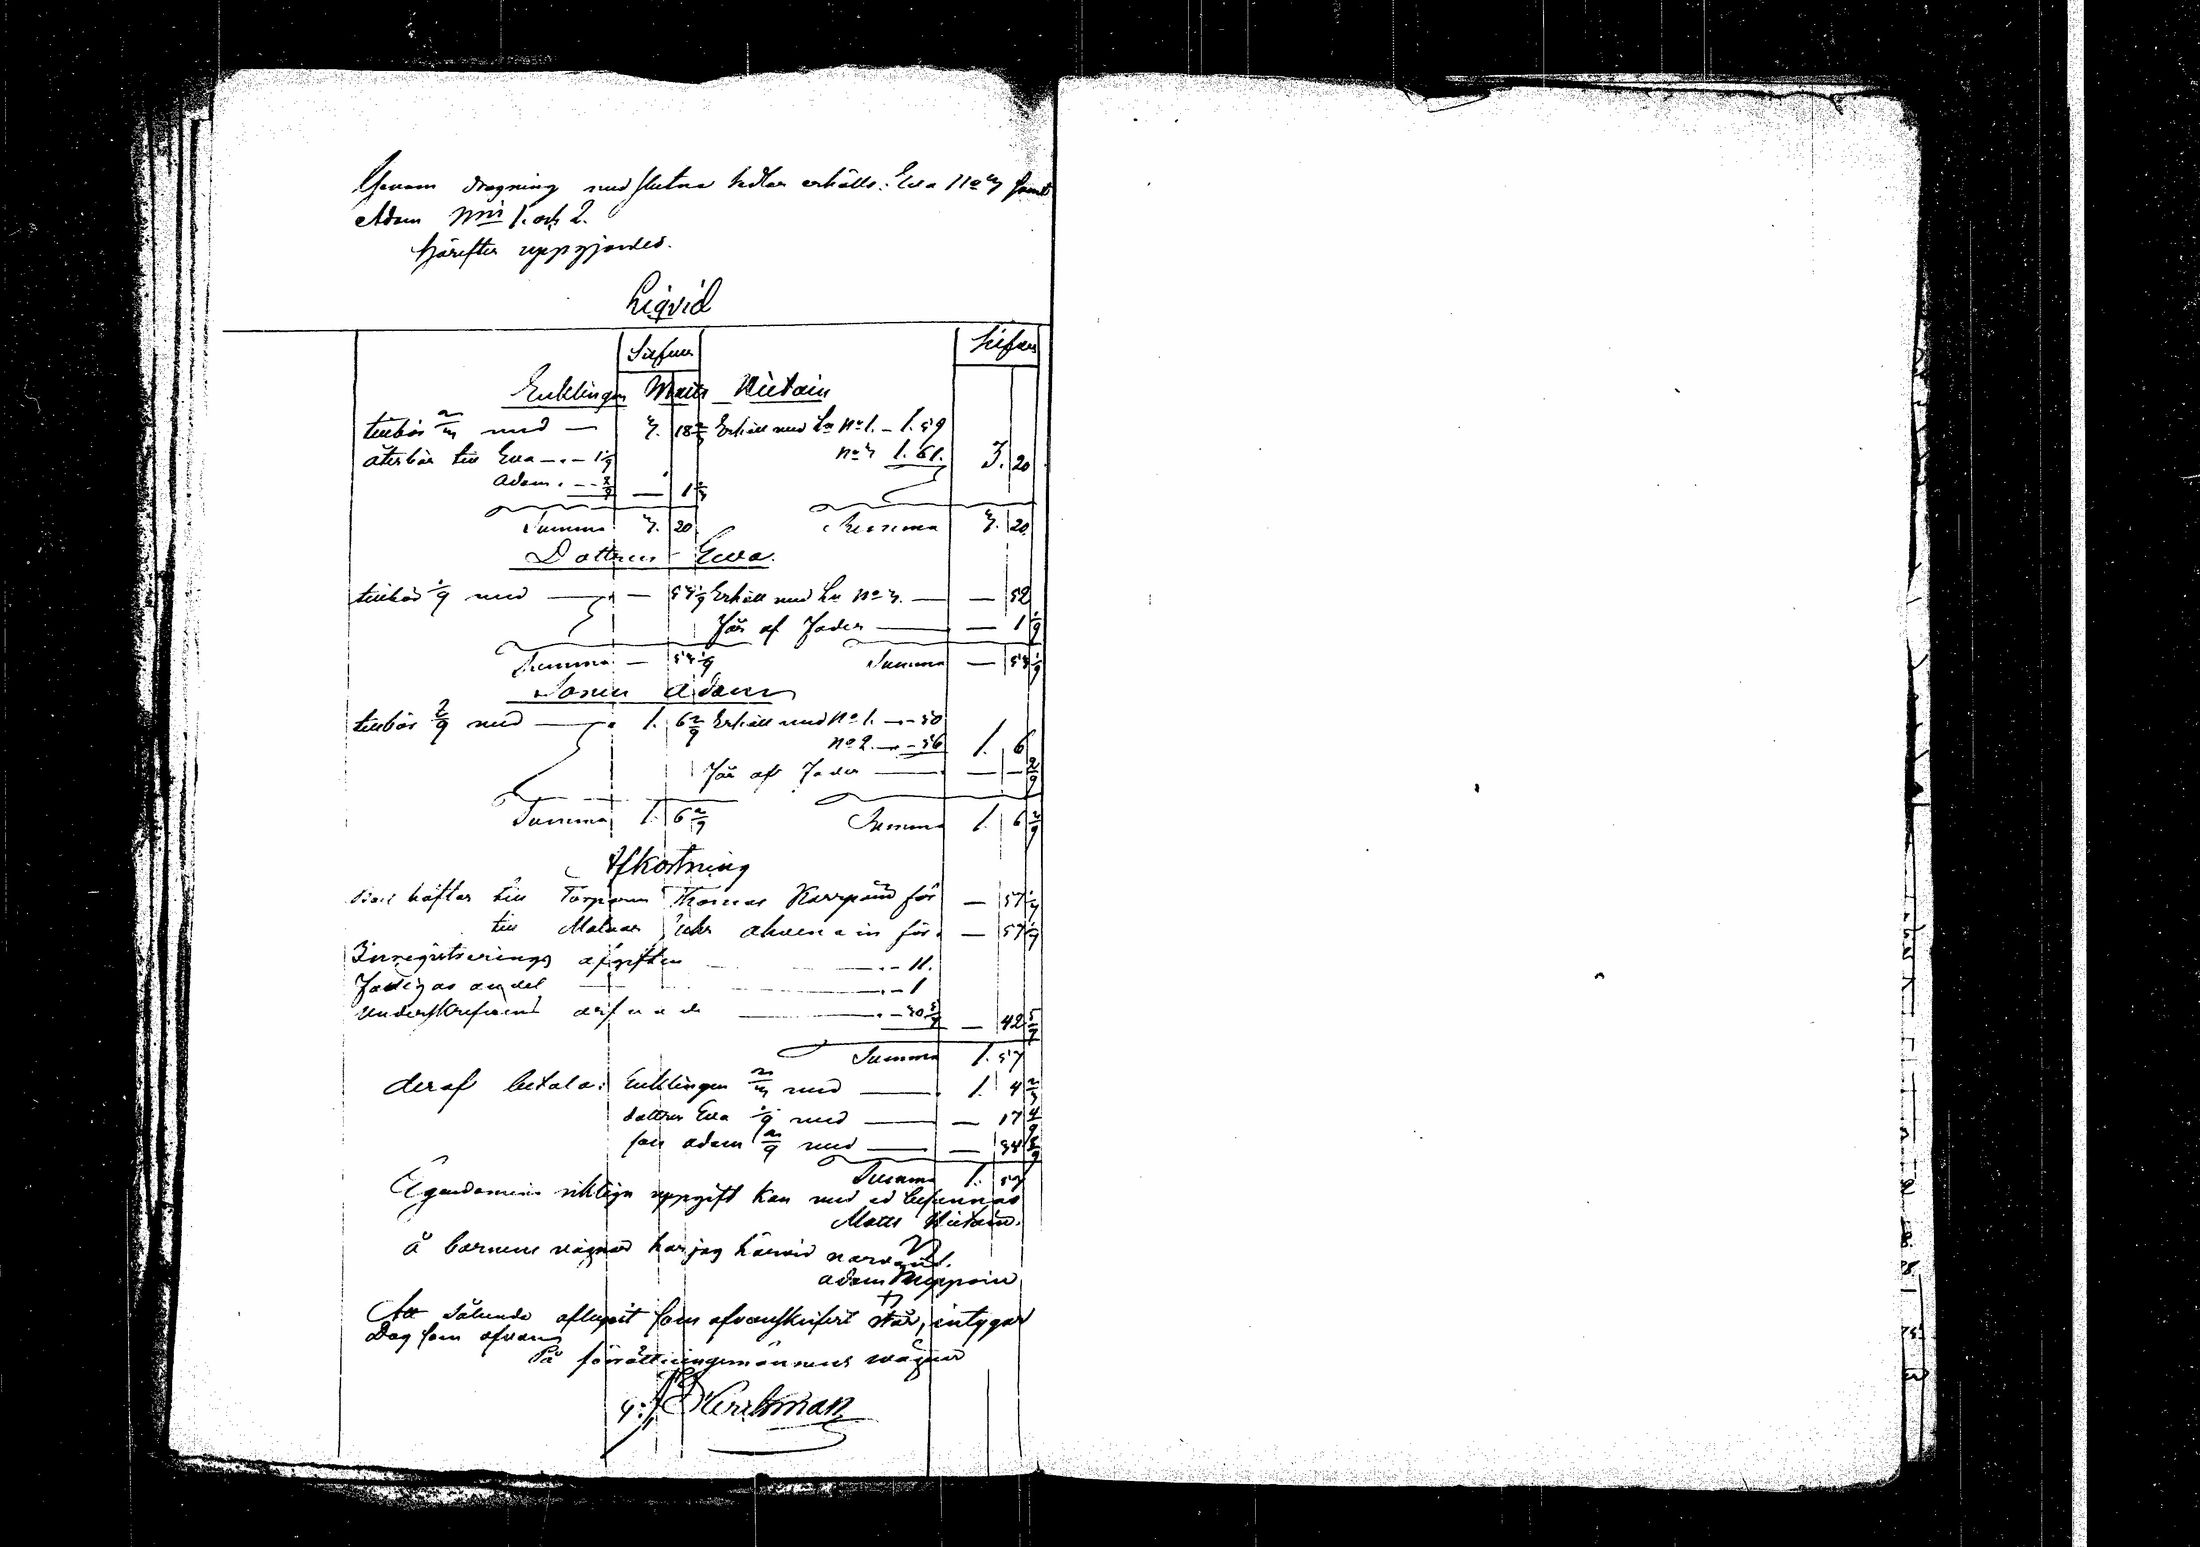 Genom dragning med slutna sedlar erhölls: Eva No 3 samt
Adam Nris 1. och 2.
Härefter uppgjordes.
Liqvid
Silfver Silfver
Enklingen Matts Hietain
tillkör 2/3 med — 3. 18 2/3 Erhåll med Ltt No 1. - 1. 59
återbär till Eva - " - 1 1/9 No 3 1. 61. 3. 20
Adam " - - 2/9 — 1 1/3
Summa 3. 20 Summa 3. 20
Dottren Eva
tillkör 1/9 med — — 53 1/9 Erhåll med Ltt No 3. — — 52
Får af Fader — — 1 1/9
Summa — 53 1/9 Summa — 53 1/9
Sonen Adam
tillkör 2/9 med — 1. 6 2/9 Erhåll med No 1. - " - 50
No 2. - " - 56 1. 6
Får af Fader — — — 2/9
Summa 1. 6 2/9 Summa 1. 6 2/9
Afkortning
häftar till Torparen Thomas för — 57
till för — 57
Inregistrerings afgiften - 11.
Fattigas andel - 1
Underskrifvens arfvode - 30 — 42
Summa 1. 57
deraf betala: Enklingen 2/3 med — 1. 4 2/3
dottren Eva 1/9 med — — 17 4/9
son Adam 2/9 med — — 34 8/9
Summa 1. 57
Egendomens riktiga uppgift kan med ed befännas
Matts Hietain.
å barnens vägnar har jag härvid närvarit.
Adam
Att sålunda aflupit som ofvanskrifvit står, intygar
Dag som ofvan
På förrättningsmännens vägnar